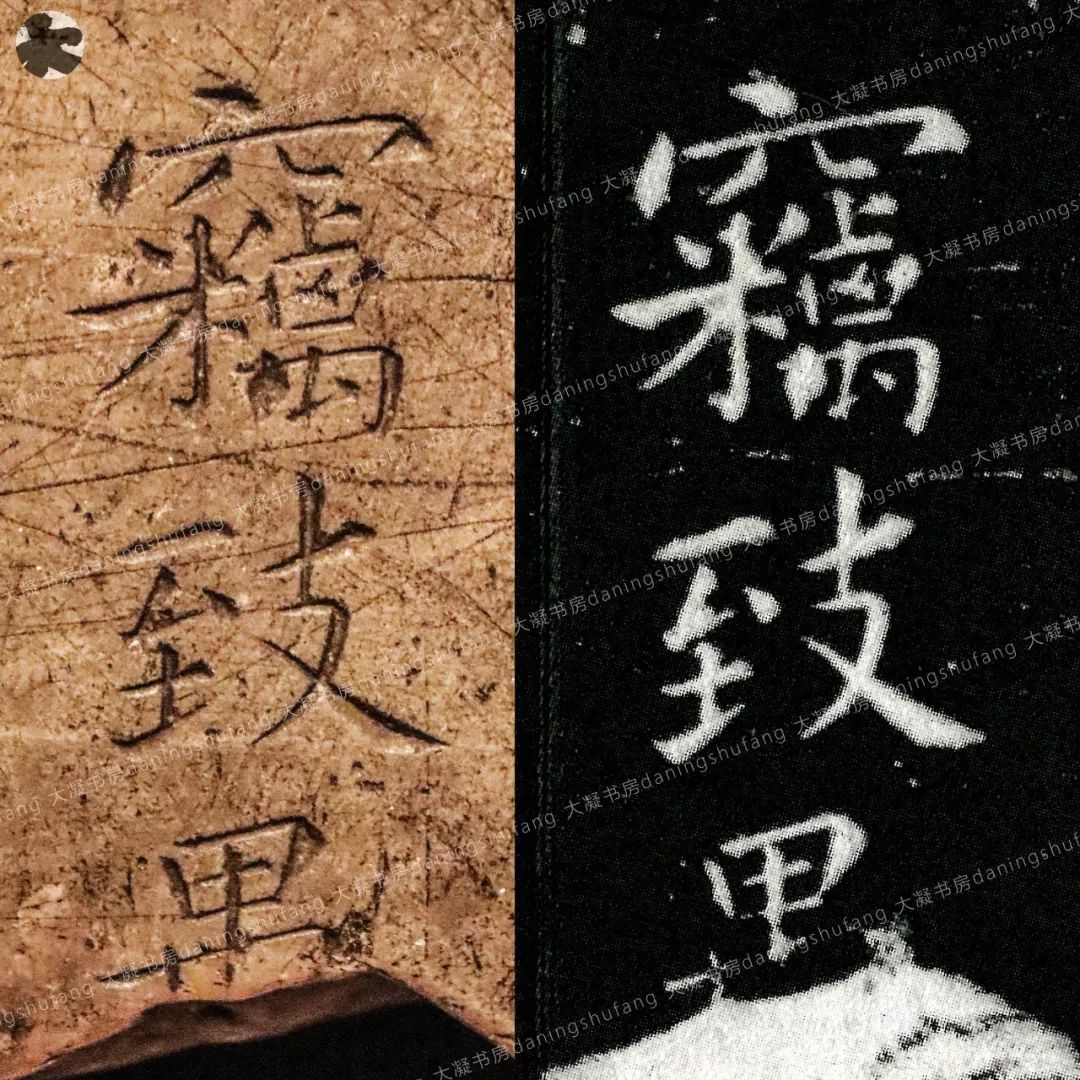 竊致
竊致
大凝书房daningshufang